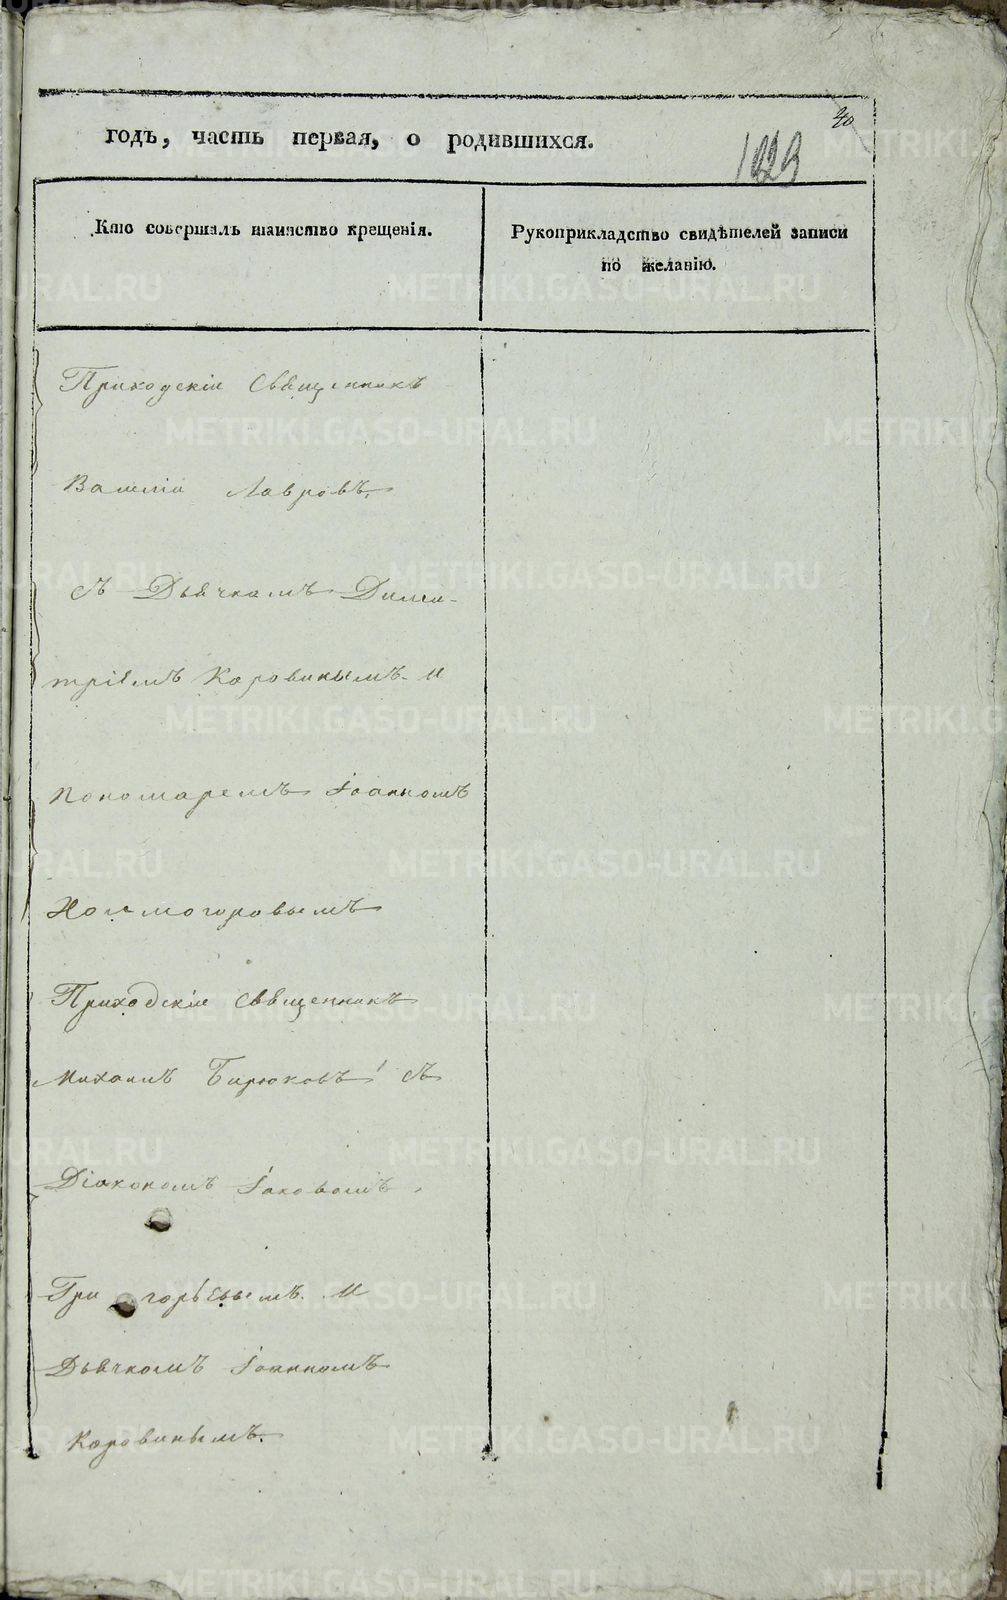 годъ, часть первая, о родившихся.
Кто совершалъ таинство крещенія.
Рукоприкладство свидѣтелей записи
по желанію.
Приходскіи Священникъ
Василіи Лавровъ.
съ Дьячкомъ Дими-
тріемъ Коровинымъ. и
пономаремъ Іоанномъ
Холмогоровымъ
Приходскіи Священникъ
Михаилъ Бирюковъ съ
Діакономъ Іаковомъ
Григорьевымъ. и
Дьячкомъ Іоанномъ
Коровинымъ.
METRIKI.GASO-URAL.RU